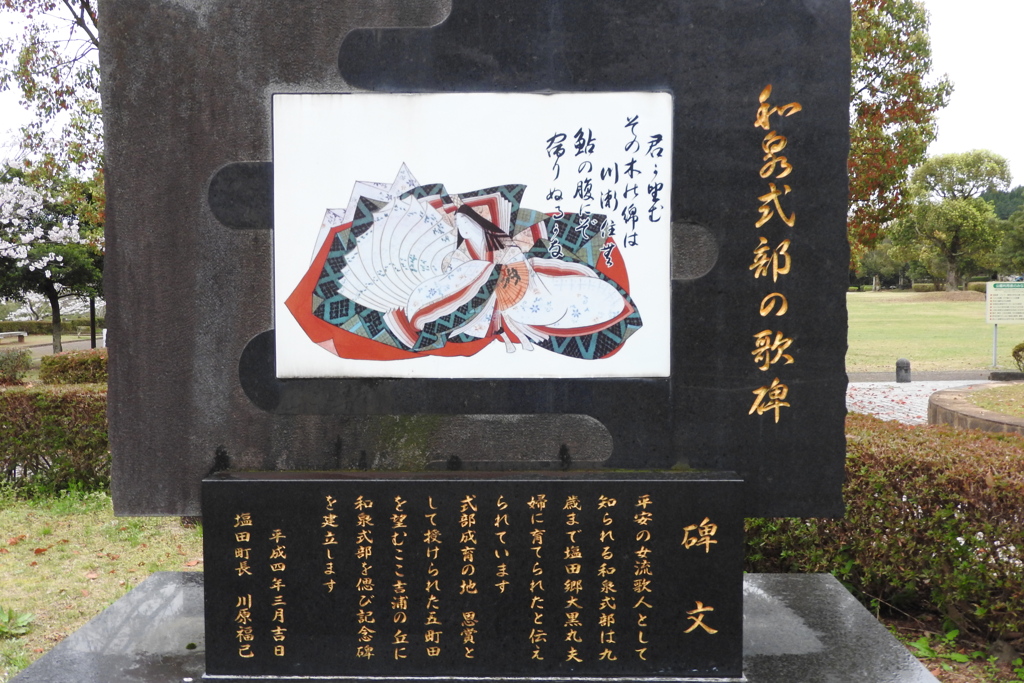 和泉式部の歌碑
君を望む
その木の綿は
川瀬に住む
鮎の腹にぞ
宿りぬるかな
碑文
平安の女流歌人として
知られる和泉式部は九
歳まで塩田郷大黒丸夫
婦に育てられたと伝え
られています
式部成育の地 恩賞と
して授けられた五町田
を望むここ吉浦の丘に
和泉式部を偲び記念碑
を建立します
平成四年三月吉日
塩田町長 川原福己